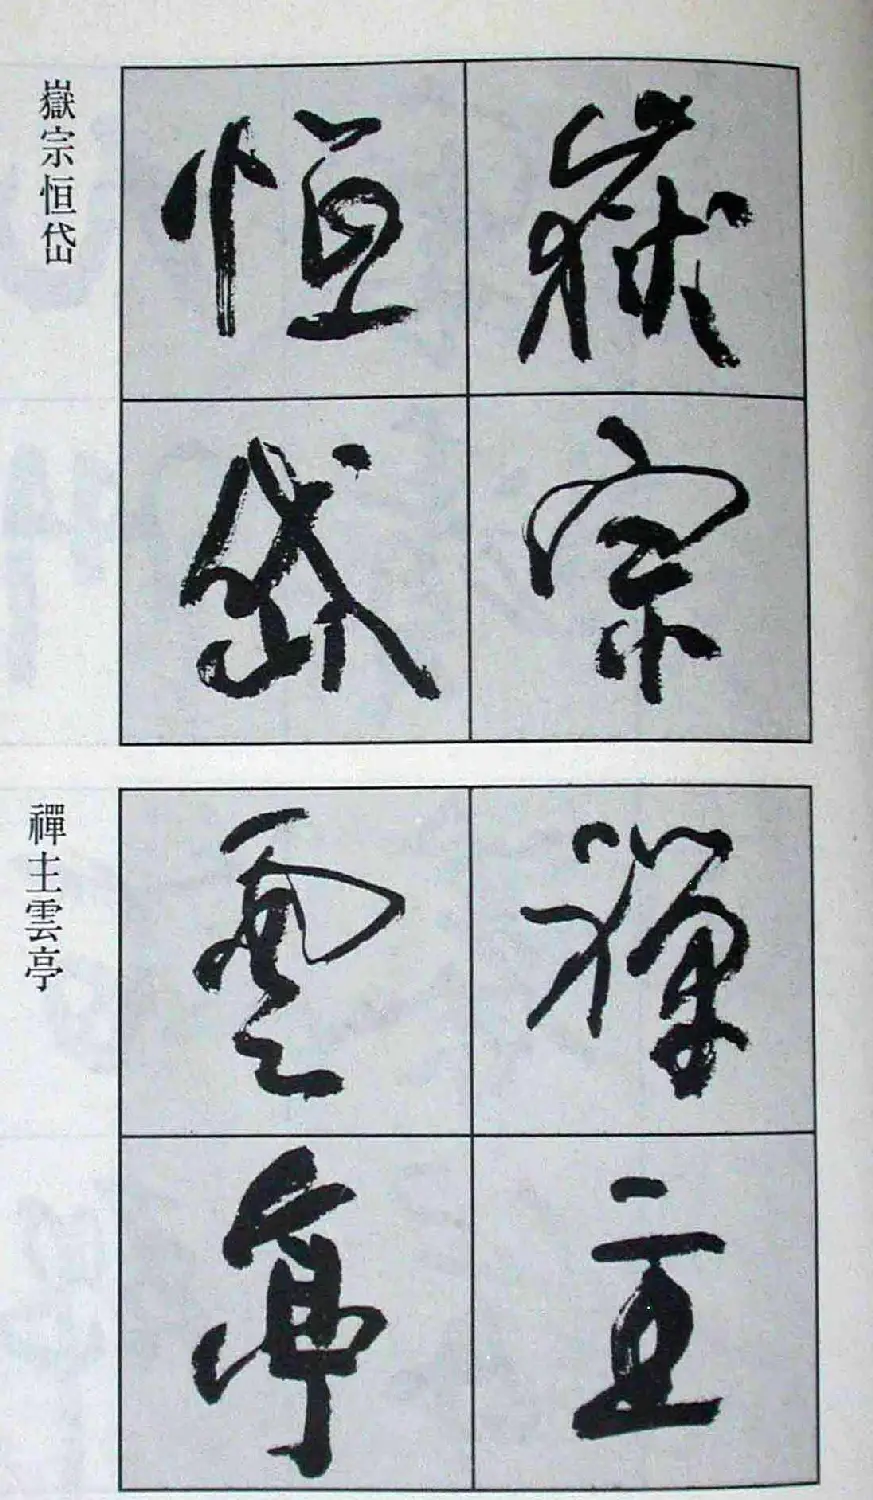 嶽宗
恒岱
嶽宗恒岱
禪主
雲亭
禪主雲亭